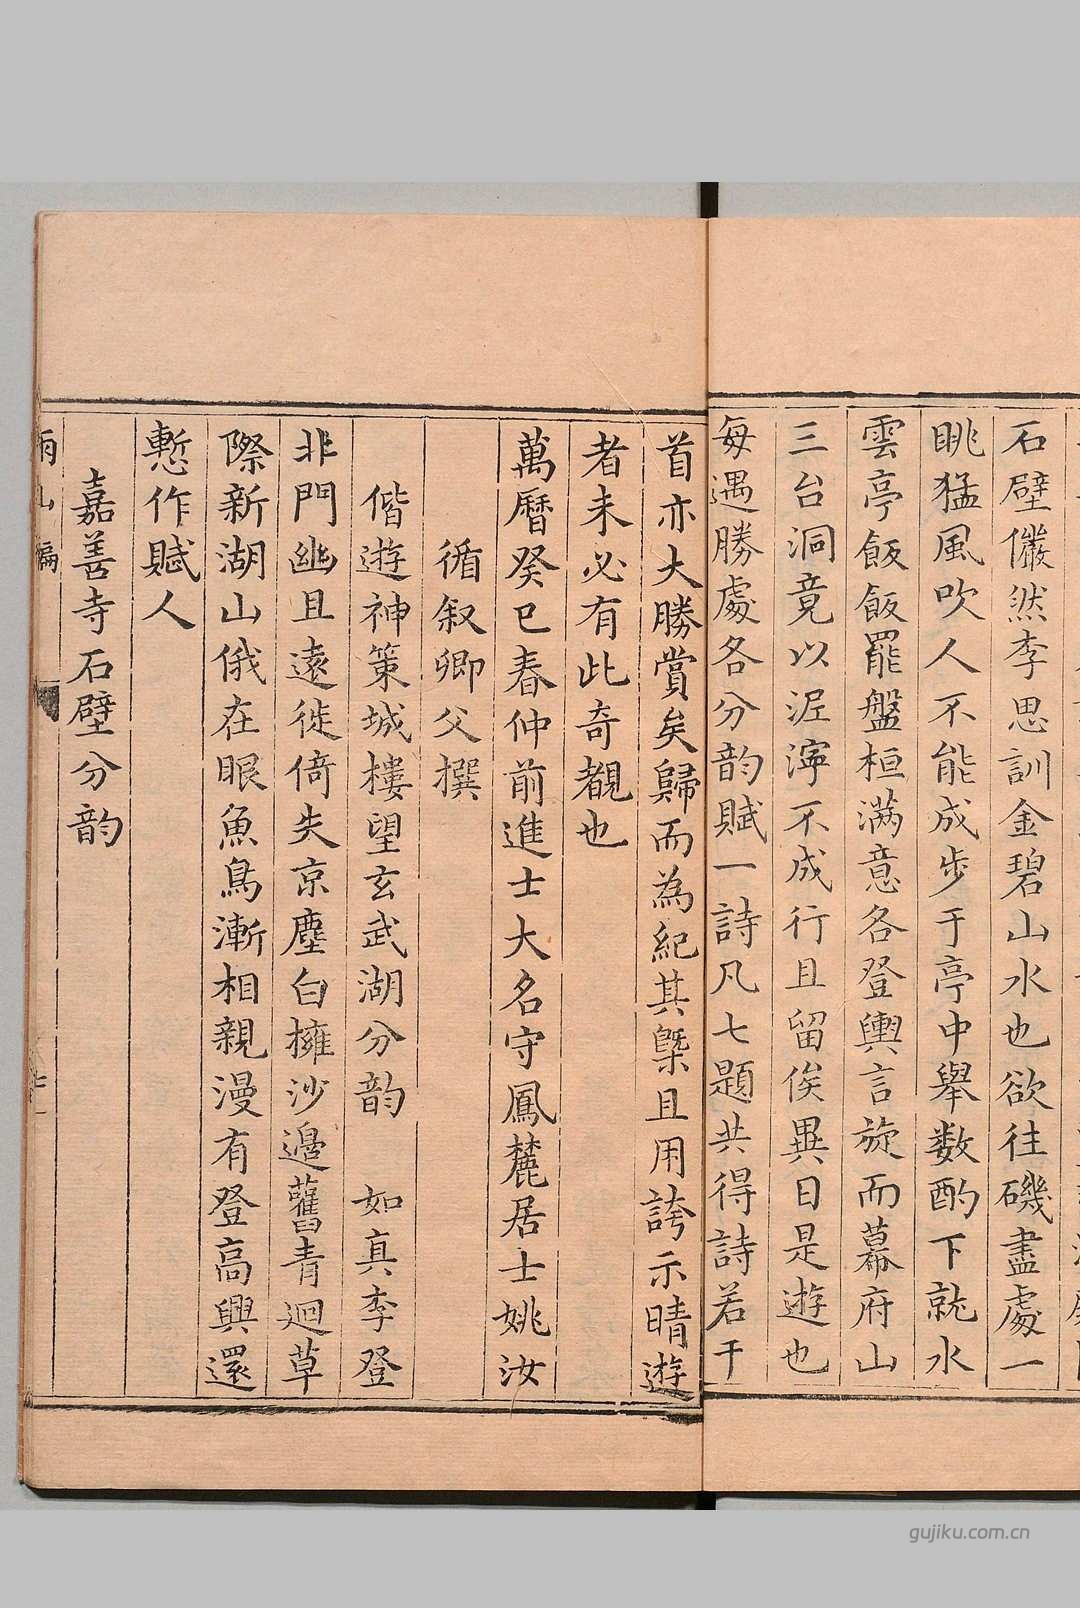 石壁儼然李思訓金碧山水也欲往磯盡處一
眺猛風吹人不能成步于亭中舉数酌下就水
雲亭飯飯罷盤桓滿意各登輿言旋而幕府山
三台洞竟以泥濘不成行且留俟異日是遊也
每遇勝處各分韵賦一詩凡七題共得詩若干
首亦大勝賞矣歸而為紀其槩且用誇示晴遊
者未必有此奇覩也
萬曆癸巳春仲前進士大名守鳳麓居士姚汝
循叙卿父撰
偕遊神策城樓望玄武湖分韵 如真李登
非門幽且遠徙倚失京塵白擁沙邊舊青迴草
際新湖山俄在眼魚鳥漸相親漫有登高興還
慙作賦人
嘉善寺石壁分韵
雨山編
gujiku.com.cn